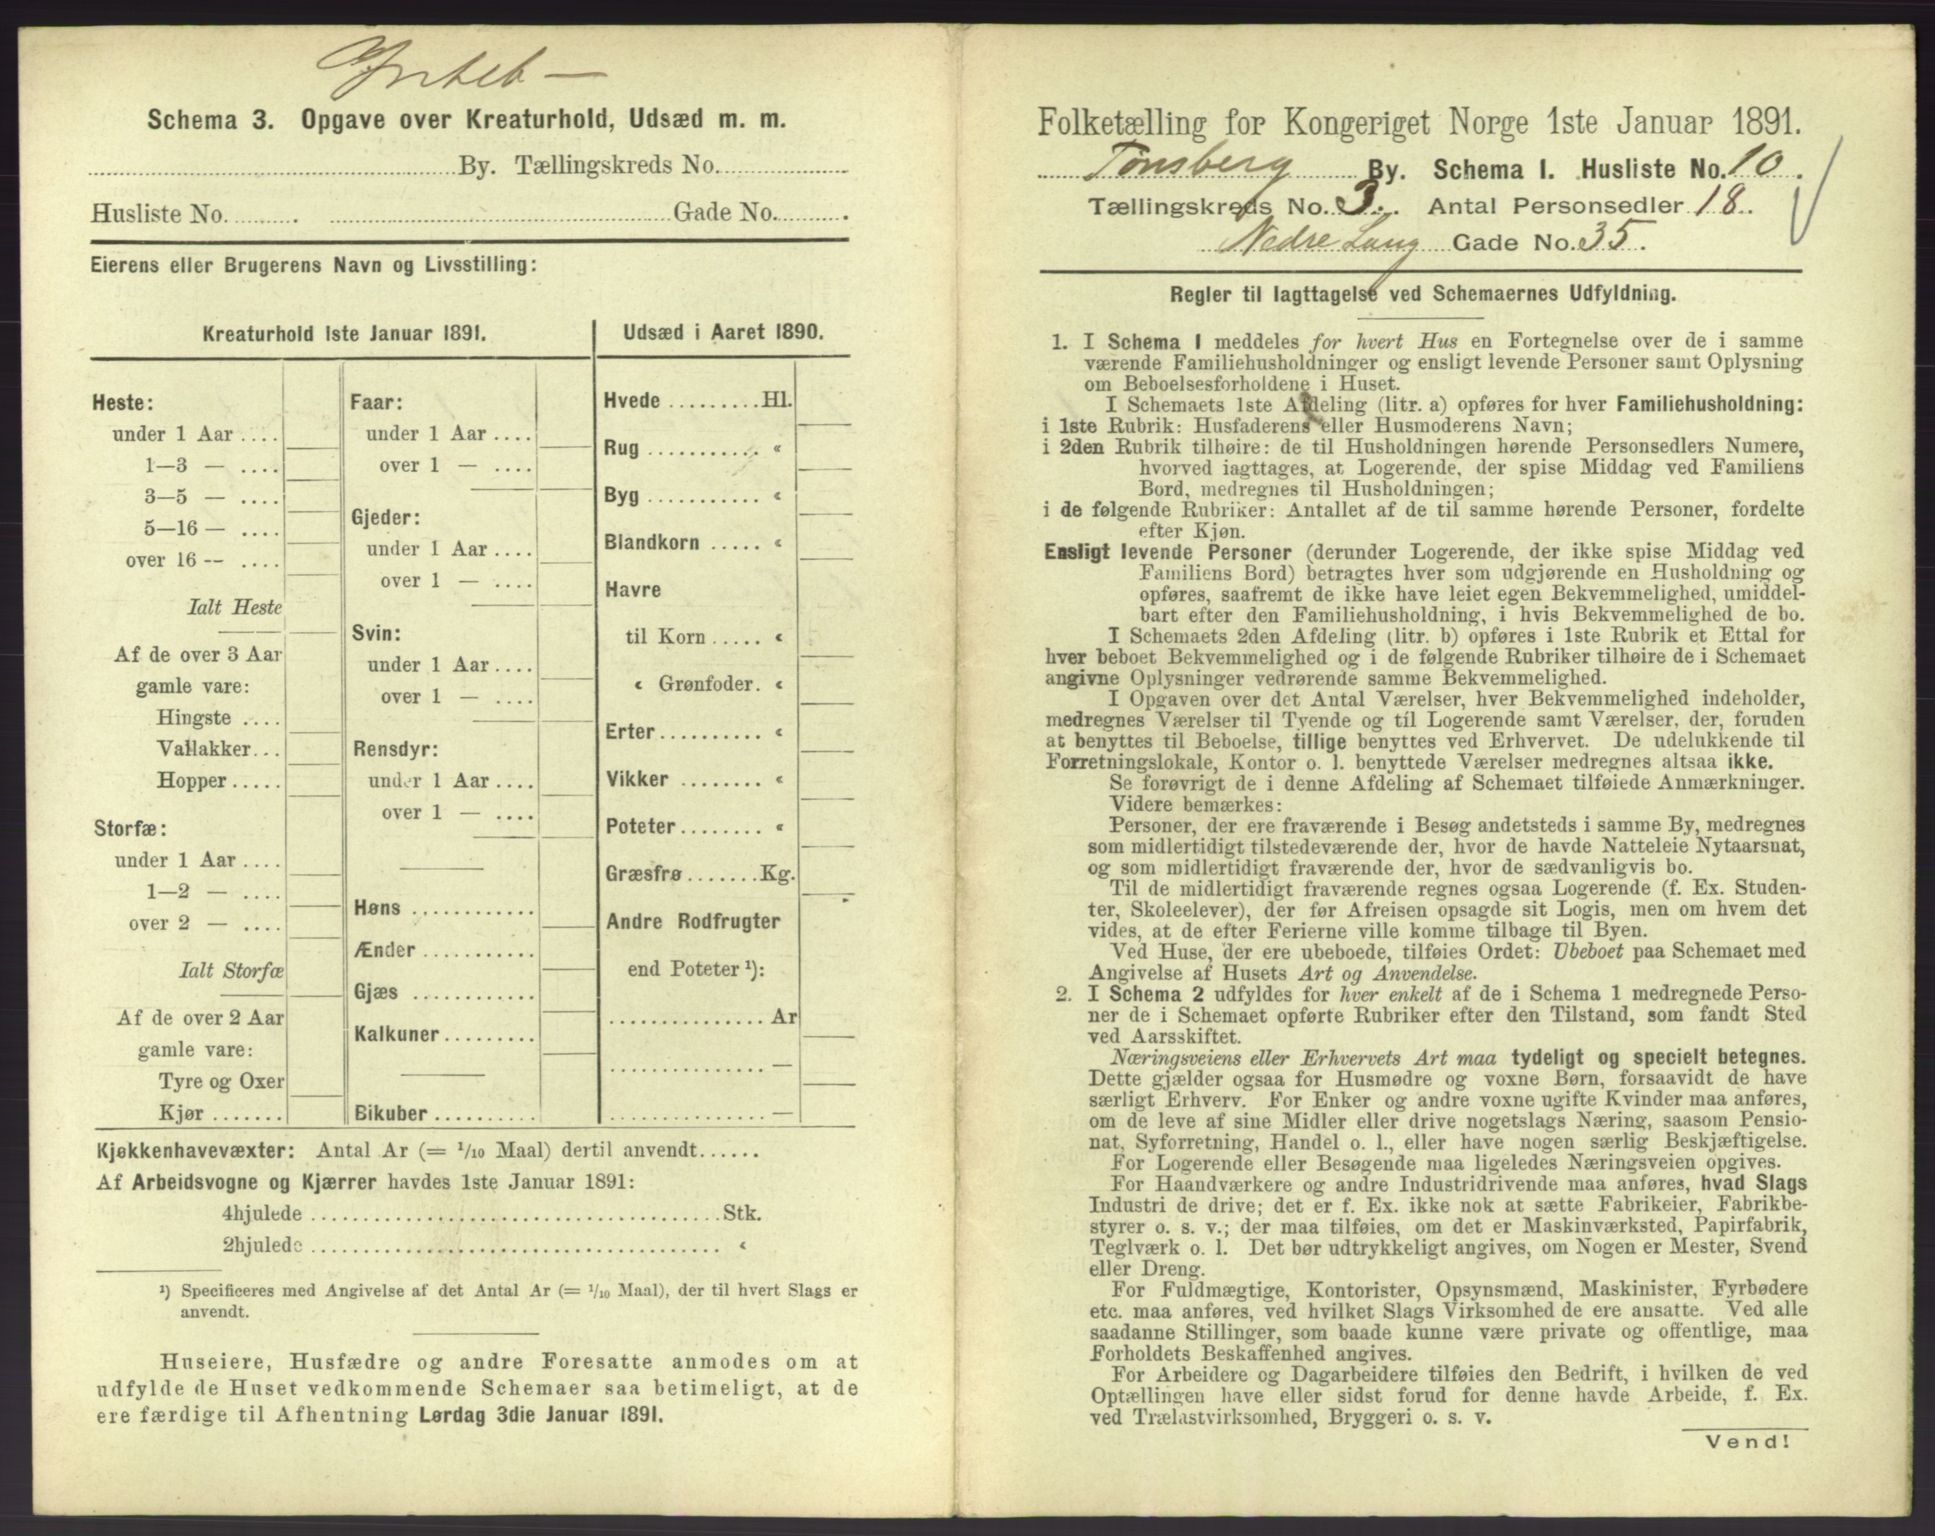 Intet —
Schema 3. Opgave over Kreaturhold, Udsæd m. m.
By. Tællingskreds No.
Husliste No. Gade No.
Eierens eller Brugerens Navn og Livsstilling:
Kreaturhold 1ste Januar 1891.
Heste:
under 1 Aar ....
1—3 — ....
3—5 — ....
5—16 — ....
over 16 — ....
Ialt Heste
Af de over 3 Aar
gamle vare:
Hingste ....
Vallakker...
Hopper.....
Storfæ:
under 1 Aar ....
1—2 — ....
over 2 — ....
Ialt Storfæ
Af de over 2 Aar
gamle vare:
Tyre og Oxer
Kjør .......
Faar:
under 1 Aar ....
over 1 — ....
Gjeder:
under 1 Aar ....
over 1 — ....
Svin:
under 1 Aar ....
over 1 — ....
Rensdyr:
under 1 Aar ....
over 1 — ....
Høns ............
Ænder ...........
Gjæs ............
Kalkuner.........
Bikuber ..........
Udsæd i Aaret 1890.
Hvede .........Hl.
Rug ........... «
Byg ........... «
Blandkorn ..... «
Havre
til Korn ..... «
« Grønfoder. «
Erter.......... «
Vikker ........ «
Poteter........ «
Græsfrø.......Kg.
Andre Rodfrugter
end Poteter ¹):
............... Ar
............... —
............... —
Kjøkkenhavevæxter: Antal Ar (= 1/10 Maal) dertil anvendt......
Af Arbeidsvogne og Kjærrer havdes 1ste Januar 1891:
4hjulede ........................................Stk.
2hjulede ........................................ «
¹) Specificeres med Angivelse af det Antal Ar (= 1/10 Maal), der til hvert Slags er
anvendt.
Huseiere, Husfædre og andre Foresatte anmodes om at
udfylde de Huset vedkommende Schemaer saa betimeligt, at de
ere færdige til Afhentning Lørdag 3die Januar 1891.
Folketælling for Kongeriget Norge 1ste Januar 1891.
Tønsberg By. Schema I. Husliste No. 10.
Tællingskreds No. 3. Antal Personsedler 18.
Nedre Lang Gade No. 35.
Regler til Iagttagelse ved Schemaernes Udfyldning.
1. I Schema I meddeles for hvert Hus en Fortegnelse over de i samme
værende Familiehusholdninger og ensligt levende Personer samt Oplysning
om Beboelsesforholdene i Huset.
I Schemaets 1ste Afdeling (litr. a) opføres for hver Familiehusholdning:
i 1ste Rubrik: Husfaderens eller Husmoderens Navn;
i 2den Rubrik tilhøire: de til Husholdningen hørende Personsedlers Numere,
hvorved iagttages, at Logerende, der spise Middag ved Familiens
Bord, medregnes til Husholdningen;
i de følgende Rubriker: Antallet af de til samme hørende Personer, fordelte
efter Kjøn.
Ensligt levende Personer (derunder Logerende, der ikke spise Middag ved
Familiens Bord) betragtes hver som udgjørende en Husholdning og
opføres, saafremt de ikke have leiet egen Bekvemmelighed, umiddel-
bart efter den Familiehusholdning, i hvis Bekvemmelighed de bo.
I Schemaets 2den Afdeling (litr. b) opføres i 1ste Rubrik et Ettal for
hver beboet Bekvemmelighed og i de følgende Rubriker tilhøire de i Schemaet
angivne Oplysninger vedrørende samme Bekvemmelighed.
I Opgaven over det Antal Værelser, hver Bekvemmelighed indeholder,
medregnes Værelser til Tyende og til Logerende samt Værelser, der, foruden
at benyttes til Beboelse, tillige benyttes ved Erhvervet. De udelukkende til
Forretningslokale, Kontor o. l. benyttede Værelser medregnes altsaa ikke.
Se forøvrigt de i denne Afdeling af Schemaet tilføiede Anmærkninger.
Videre bemærkes:
Personer, der ere fraværende i Besøg andetsteds i samme By, medregnes
som midlertidigt tilstedeværende der, hvor de havde Natteleie Nytaarsnat,
og som midlertidigt fraværende der, hvor de sædvanligvis bo.
Til de midlertidigt fraværende regnes ogsaa Logerende (f. Ex. Studen-
ter, Skoleelever), der før Afreisen opsagde sit Logis, men om hvem det
vides, at de efter Ferierne ville komme tilbage til Byen.
Ved Huse, der ere ubeboede, tilføies Ordet: Ubeboet paa Schemaet med
Angivelse af Husets Art og Anvendelse.
2. I Schema 2 udfyldes for hver enkelt af de i Schema 1 medregnede Perso-
ner de i Schemaet opførte Rubriker efter den Tilstand, som fandt Sted
ved Aarsskiftet.
Næringsveiens eller Erhvervets Art maa tydeligt og specielt betegnes.
Dette gjælder ogsaa for Husmødre og voxne Børn, forsaavidt de have
særligt Erhverv. For Enker og andre voxne ugifte Kvinder maa anføres,
om de leve af sine Midler eller drive nogetslags Næring, saasom Pensio-
nat, Syforretning, Handel o. l., eller have nogen særlig Beskjæftigelse.
For Logerende eller Besøgende maa ligeledes Næringsveien opgives.
For Haandværkere og andre Industridrivende maa anføres, hvad Slags
Industri de drive; det er f. Ex. ikke nok at sætte Fabrikeier, Fabrikbe-
styrer o. s. v.; der maa tilføies, om det er Maskinværksted, Papirfabrik,
Teglværk o. l. Det bør udtrykkeligt angives, om Nogen er Mester, Svend
eller Dreng.
For Fuldmægtige, Kontorister, Opsynsmænd, Maskinister, Fyrbødere
etc. maa anføres, ved hvilket Slags Virksomhed de ere ansatte. Ved alle
saadanne Stillinger, som baade kunne være private og offentlige, maa
Forholdets Beskaffenhed angives.
For Arbeidere og Dagarbeidere tilføies den Bedrift, i hvilken de ved
Optællingen have eller sidst forud for denne havde Arbeide, f. Ex.
ved Trælastvirksomhed, Bryggeri o. s. v.
Vend!